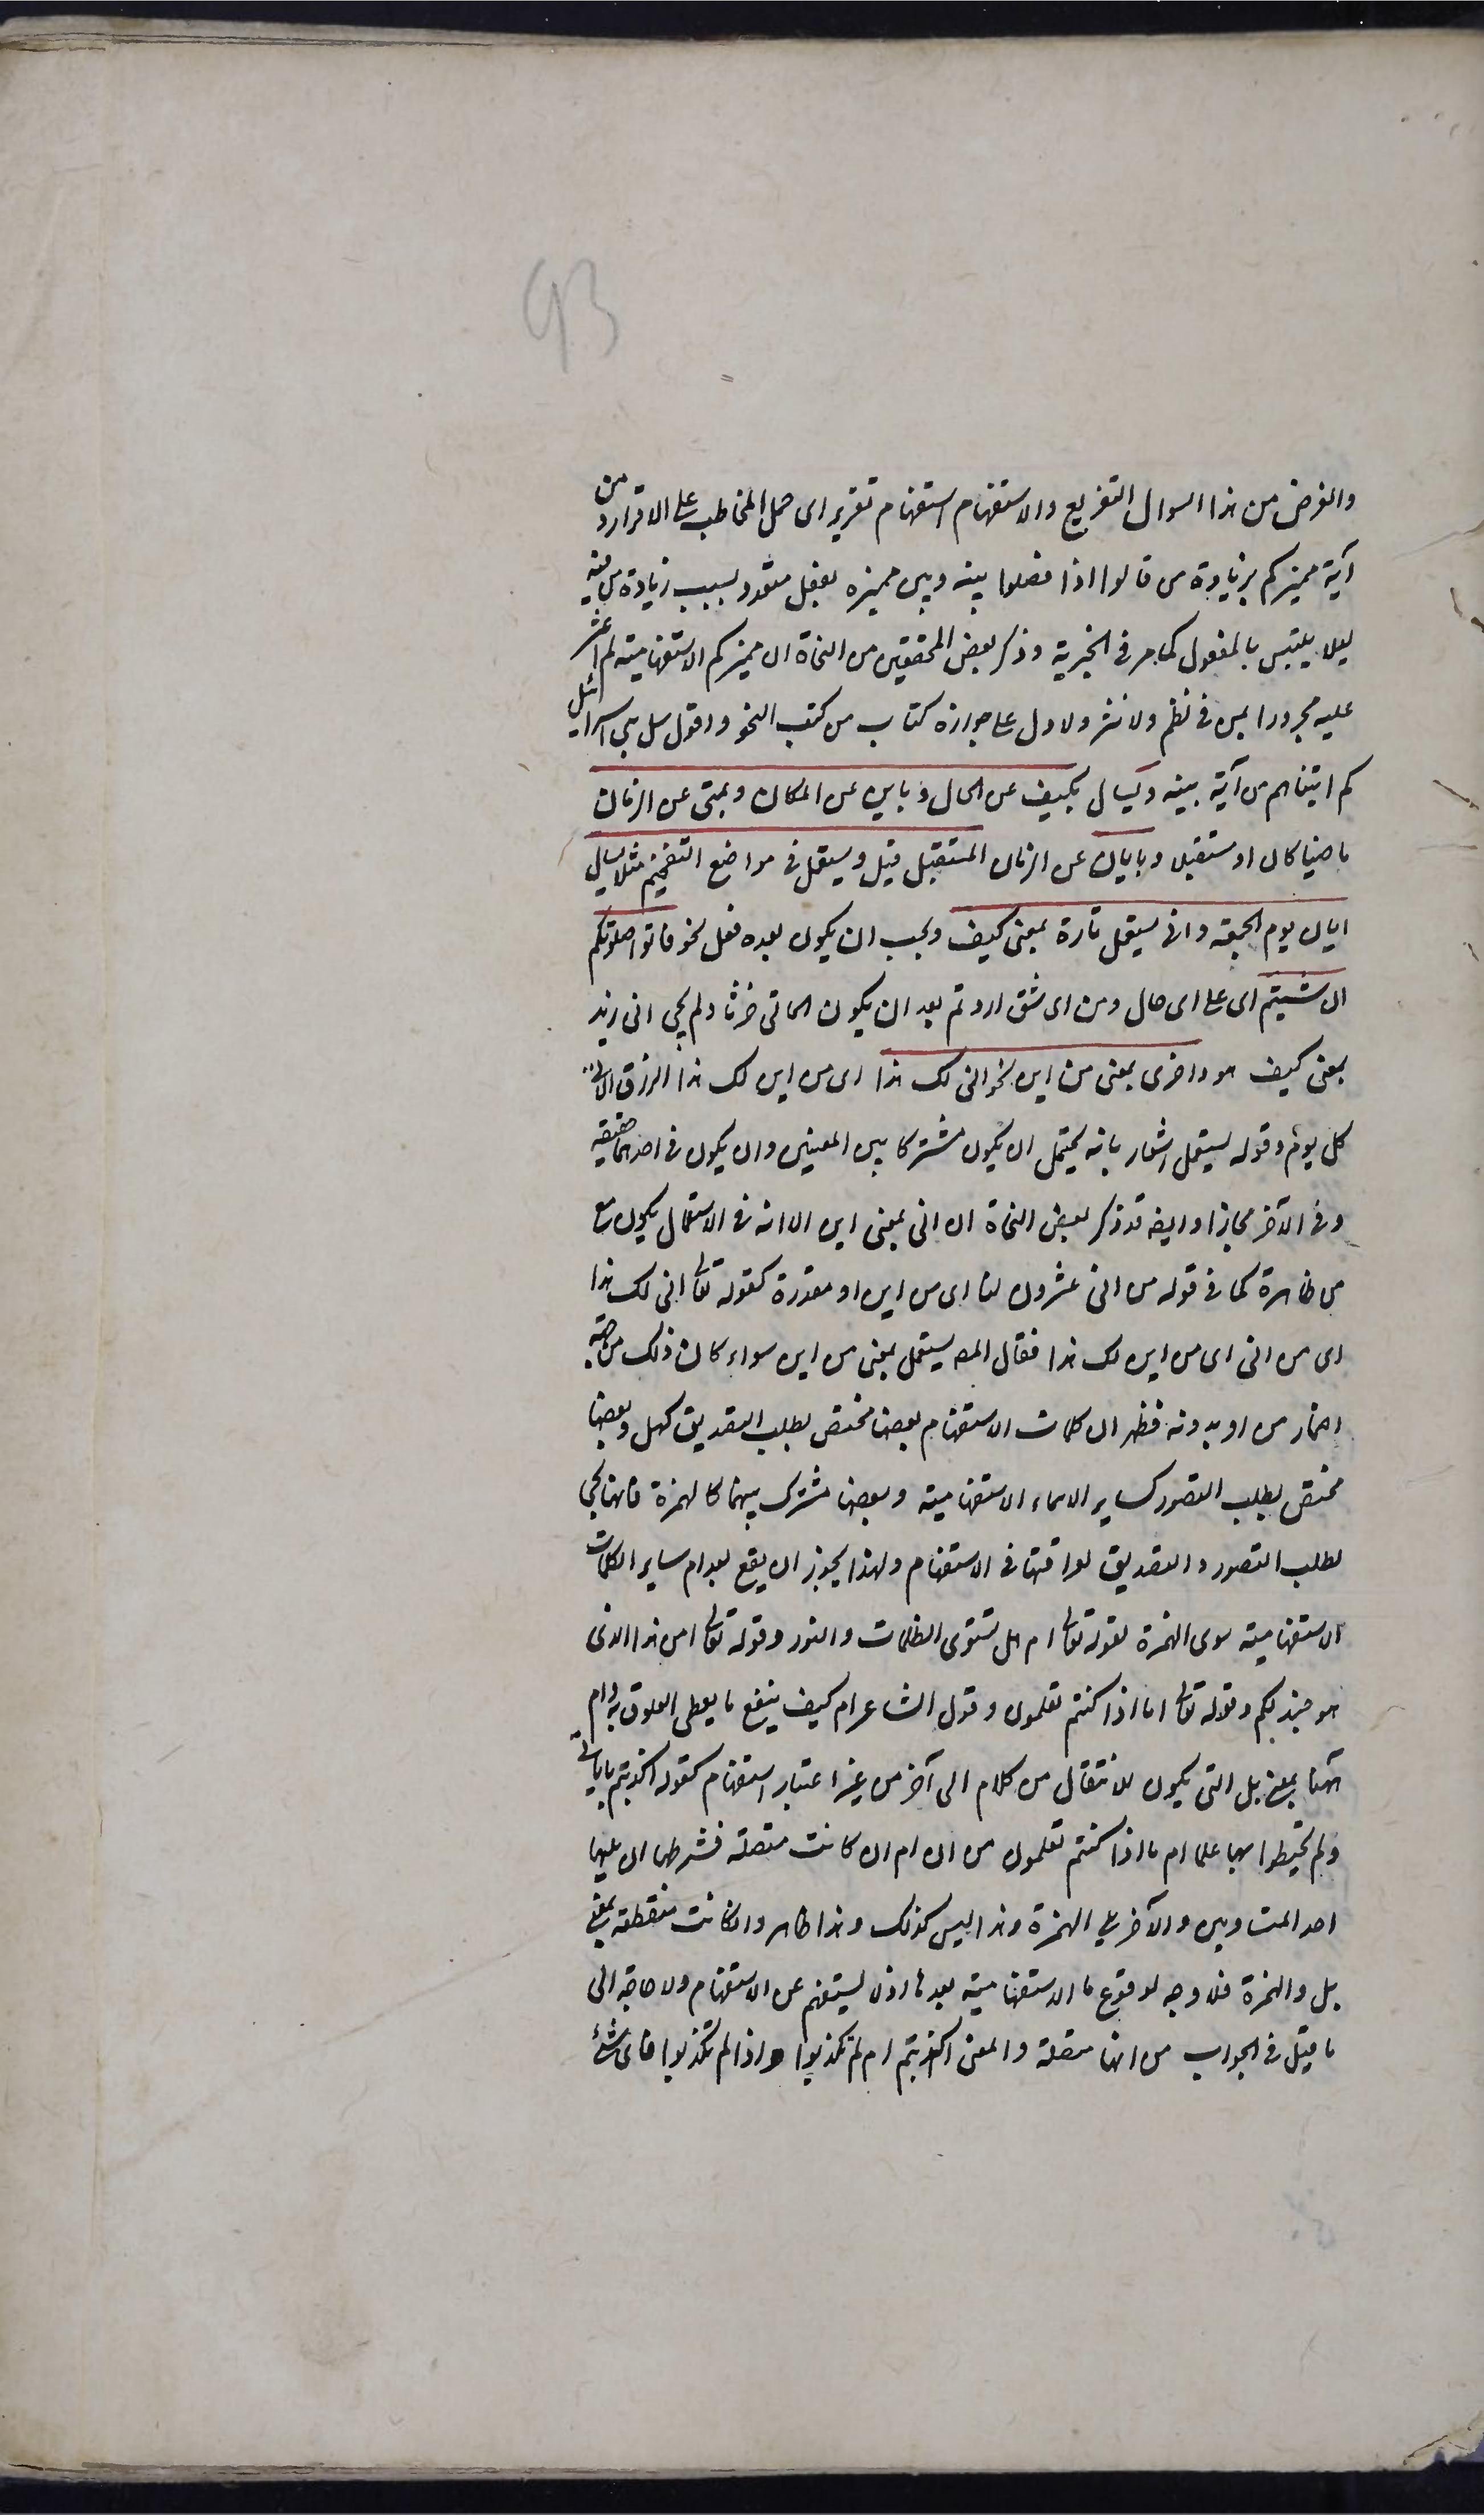 93
والغرض من هذا السوال التقريع والاستفهام استفهام تقرير اى حمل المخاطب على الاقرار و من
آية مميزكم بزيادة من قالوا اذا فصلوا بينه وبين مميزه بفعل متعد وبسبب زيادة من فيه
ليلا يلتبس بالمفعول كما مر فى الخبرية وذكر بعض المحققين من النحاة ان مميزكم الاستفهامية لم اعثر
عليه مجرورا بمن فى نظم ولا نثر ولا دل على جوازه كتاب من كتب النحو واقول سل بنى اسرائيل
كم اتيناهم من آية بينه ويسال بكيف عن الحال وباين عن المكان وبمتى عن الزمان
ماضيا كان او مستقبلا وبايان عن الزمان المستقبل قيل ويستعمل فى مواضع التفخيم مثل يسال
ايان يوم القيمة وانى يستعمل تارة بمعنى كيف ويجب ان يكون بعده فعل نحو فاتوا حرثكم
انى شئتم اى على اى حال ومن اى شق اردتم بعد ان يكون الماتى حرثا ولم يجى انى زيد
بمعنى كيف هو واخرى بمعنى من اين نحو انى لك هذا اى من اين لك هذا الرزق الاتى
كل يوم وقوله يستعمل اشعار بانه يحتمل ان يكون مشتركا بين المعنيين وان يكون فى احدهما حقيقة
وفى الآخر مجازا وايضه قد ذكر بعض النحاة ان انى بمعنى اين الا انه فى الاستعمال يكون مع
من ظاهرة كما فى قوله من انى عشرون لنا اى من اين او مقدرة كقوله تعالى انى لك هذا
اى من انى اى من اين لك هذا فقال المص يستعمل بمعنى من اين سواء كان ذلك من جهة
اضمار من او بدونه فظهر ان كلمات الاستفهام بعضها مختص بطلب التصديق كهل وبعضها
مختص بطلب التصور كساير الاسماء الاستفهامية وبعضها مشترك بينهما كالهمزة فانها تجى
لطلب التصور والتصديق لعراقتها فى الاستفهام ولهذا يجوز ان يقع بعد ام ساير الكلمات
الاستفهامية سوى الهمزة كقوله تعالى ام هل تستوى الظلمات والنور وقوله تعالى امن هذا الذى
هو جند لكم وقوله تعالى اما اذا كنتم تعملون وقول الشاعر ام كيف ينفع ما يعطى العلوق به وام
ههنا بمعنى بل التى يكون للانتقال من كلام الى آخر من غير اعتبار استفهام كقوله اكذبتم باياتى
ولم تحيطوا بها علما ام ما اذا كنتم تعملون من ان ام ان كانت متصلة فشرطها ان يليها
احد المتساويين والآخر يلى الهمزة وهذا ليس كذلك وهذا ظاهر وان كانت منقطعة بمعنى
بل والهمزة فلا وجه لوقوع ما الاستفهامية بعدها اذ لا يستفهم عن الاستفهام ولا حاجة الى
ما قيل فى الجواب من انها متصلة والمعنى اكذبتم ام لم تكذبوا واذا لم تكذبوا فاى شئ